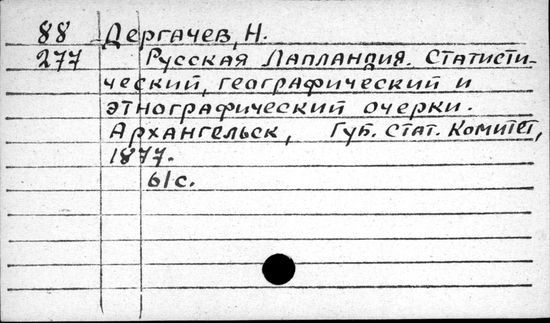 88 Дергачев, Н.
277 Русская Лапландия. Статисти-
ческий, географический и
этнографический очерки.
Архангельск, Губ. стат. комитет,
1877.
61с.